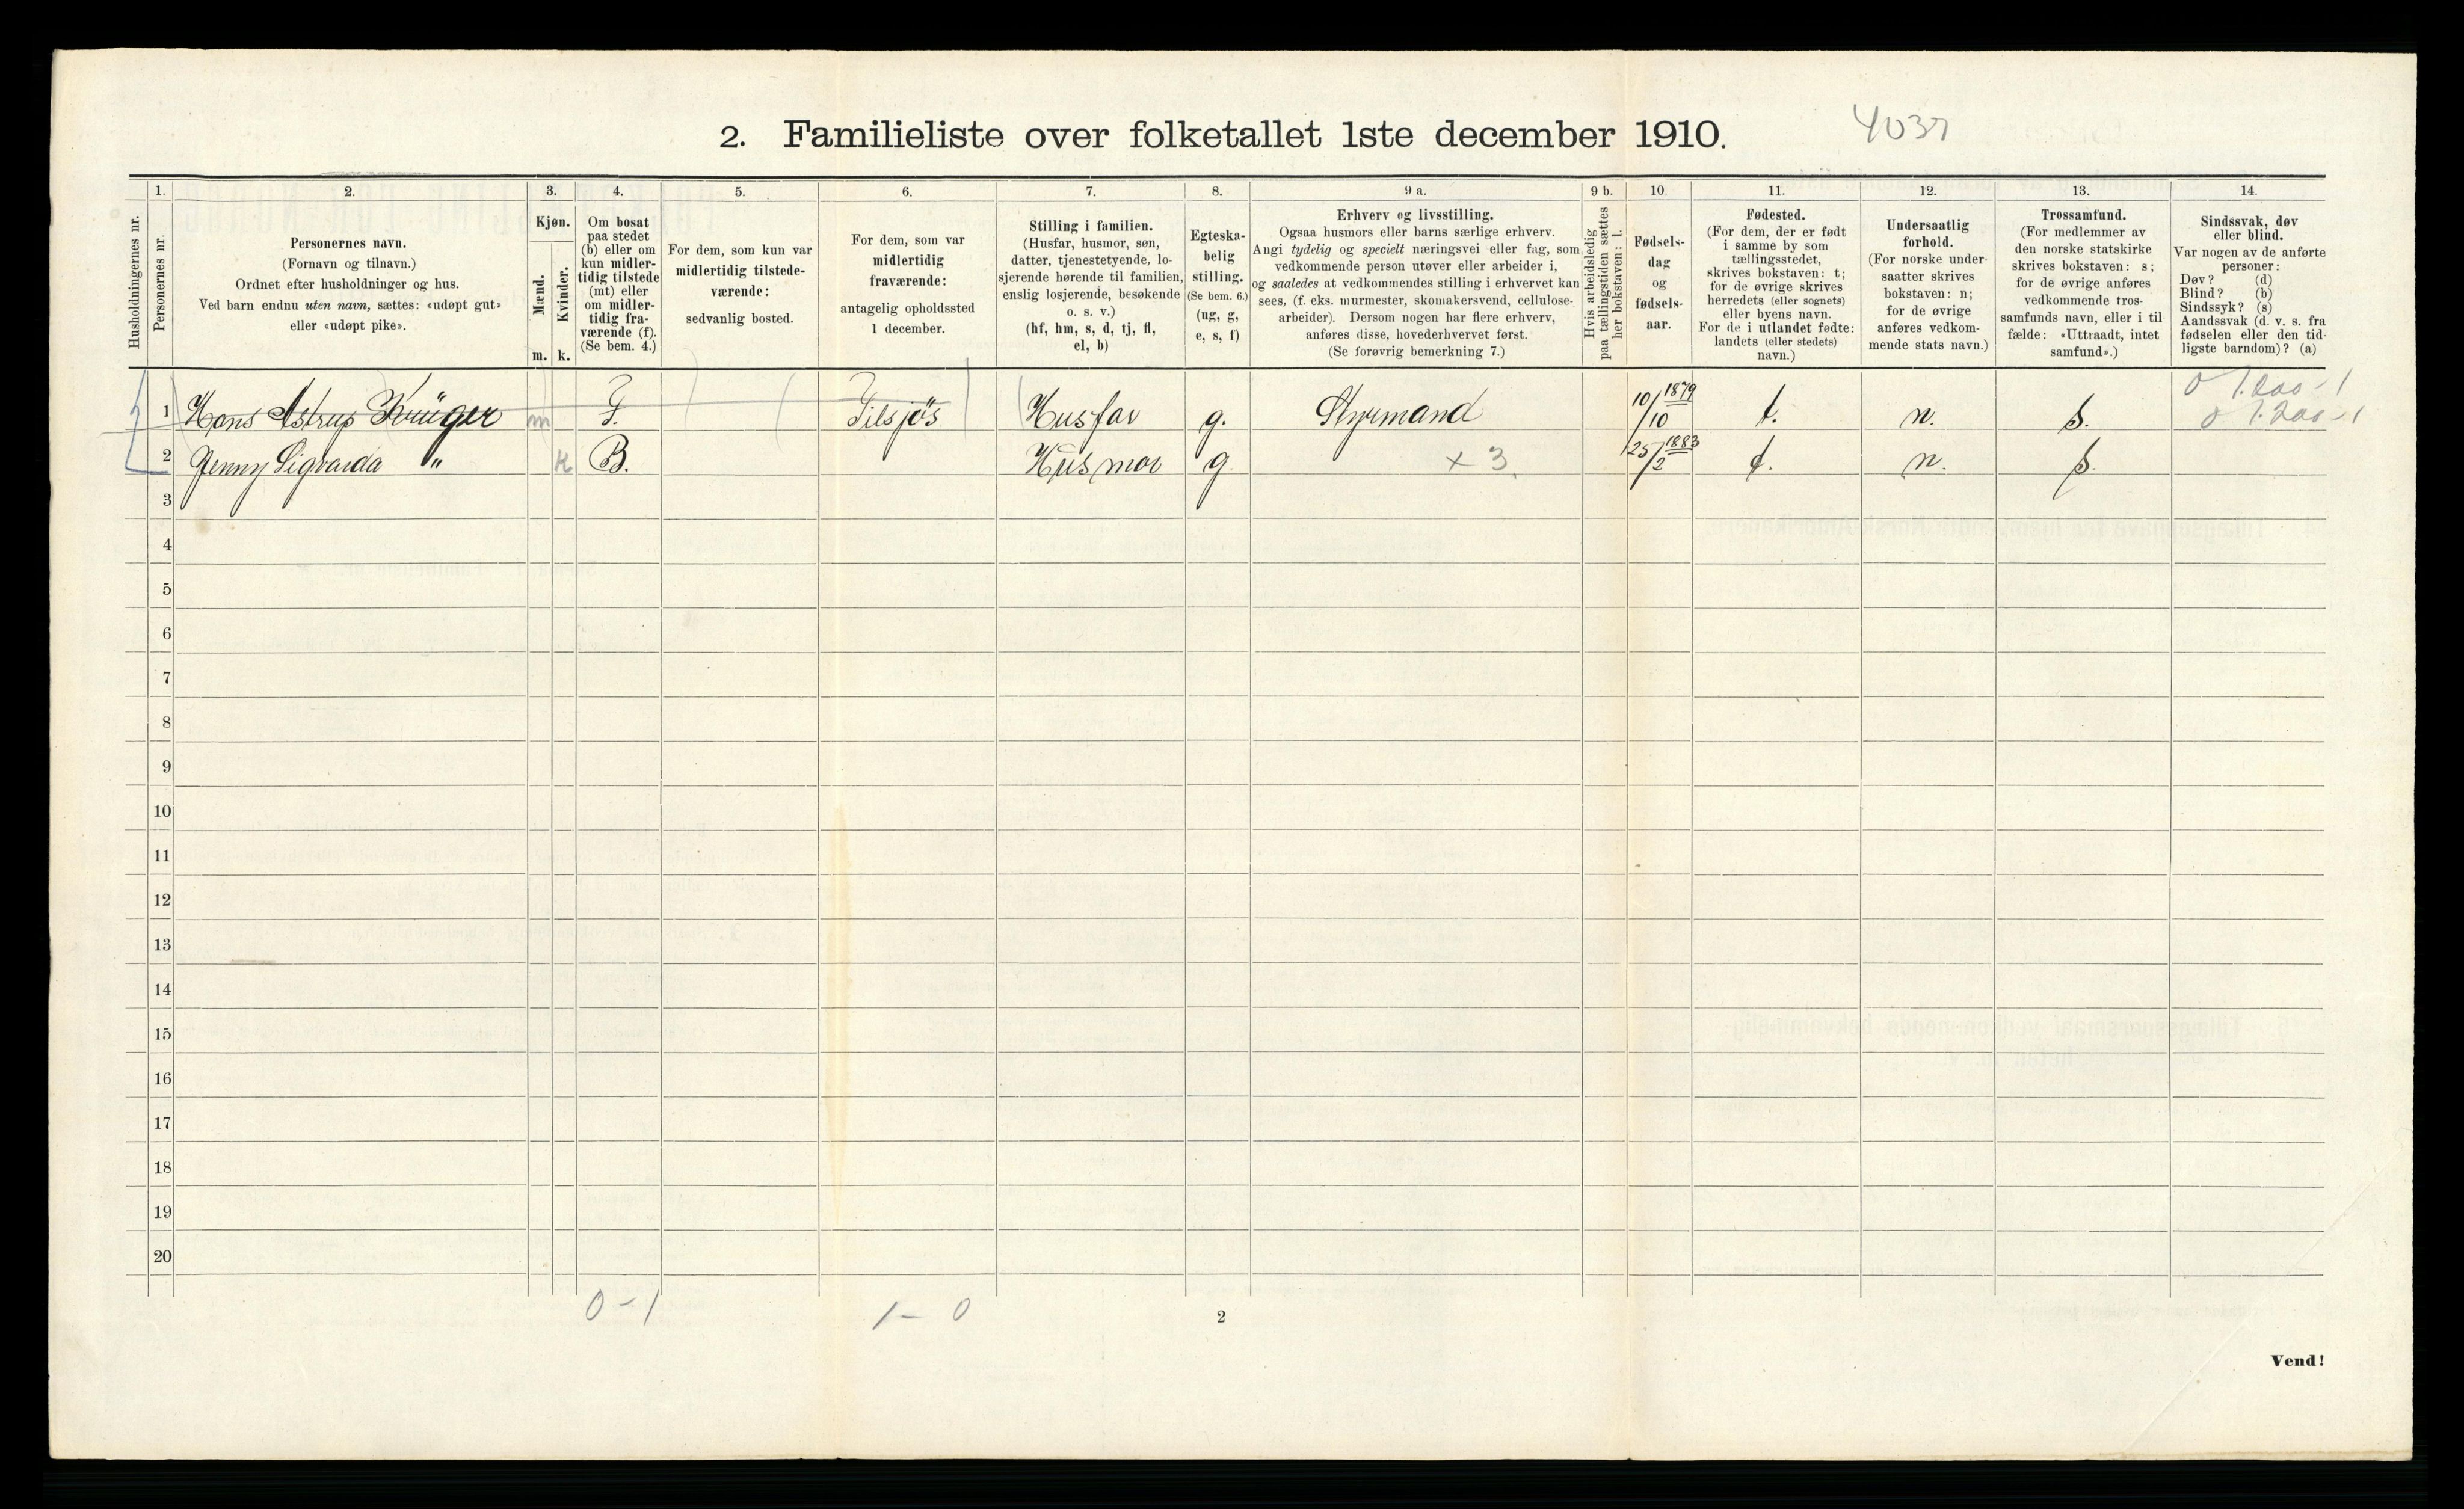 2. Familieliste over folketallet 1ste december 1910.
4037
1. 2. 3. 4. 5. 6. 7. 8. 9 a. 9 b. 10. 11. 12. 13. 14.
Husholdningernes nr.
Personernes nr.
Personernes navn.
(Fornavn og tilnavn.)
Ordnet efter husholdninger og hus.
Ved barn endnu uten navn, sættes: «udøpt gut»
eller «udøpt pike».
Kjøn.
Mænd.
Kvinder.
m. k.
Om bosat
paa stedet
(b) eller om
kun midler-
tidig tilstede
(mt) eller
om midler-
tidig fra-
værende (f).
(Se bem. 4.)
For dem, som kun var
midlertidig tilstede-
værende:
sedvanlig bosted.
For dem, som var
midlertidig
fraværende:
antagelig opholdssted
1 december.
Stilling i familien.
(Husfar, husmor, søn,
datter, tjenestetyende, lo-
sjerende hørende til familien,
enslig losjerende, besøkende
o. s. v.)
(hf, hm, s, d, tj, fl,
el, b)
Egteska-
belig
stilling.
(Se bem. 6.)
(ug, g,
e, s, f)
Erhverv og livsstilling.
Ogsaa husmors eller barns særlige erhverv.
Angi tydelig og specielt næringsvei eller fag, som
vedkommende person utøver eller arbeider i,
og saaledes at vedkommendes stilling i erhvervet kan
sees, (f. eks. murmester, skomakersvend, cellulose-
arbeider). Dersom nogen har flere erhverv,
anføres disse, hovederhvervet først.
(Se forøvrig bemerkning 7.)
Hvis arbeidsledig
paa tællingstiden sættes
her bokstaven: l.
Fødsels-
dag
og
fødsels-
aar.
Fødested.
(For dem, der er født
i samme by som
tællingsstedet,
skrives bokstaven: t;
for de øvrige skrives
herredets (eller sognets)
eller byens navn.
For de i utlandet fødte:
landets (eller stedets)
navn.)
Undersaatlig
forhold.
(For norske under-
saatter skrives
bokstaven: n;
for de øvrige
anføres vedkom-
mende stats navn.)
Trossamfund.
(For medlemmer av
den norske statskirke
skrives bokstaven: s;
for de øvrige anføres
vedkommende tros-
samfunds navn, eller i til
fælde: «Uttraadt, intet
samfund».)
Sindssvak, døv
eller blind.
Var nogen av de anførte
personer:
Døv? (d)
Blind? (b)
Sindssyk? (s)
Aandssvak (d. v. s. fra
fødselen eller den tid-
ligste barndom)? (a)
1 Hans Astrup Krüger m F. Tilsjøs Husfar g. Styrmand 10/10 1879 t. n. s.
2 Jenny Sigvarda " k B. Husmor g. x 3 25/2 1883 t. n. s.
3
4
5
6
7
8
9
10
11
12
13
14
15
16
17
18
19
20
0 - 1
1 - 0
2
Vend!